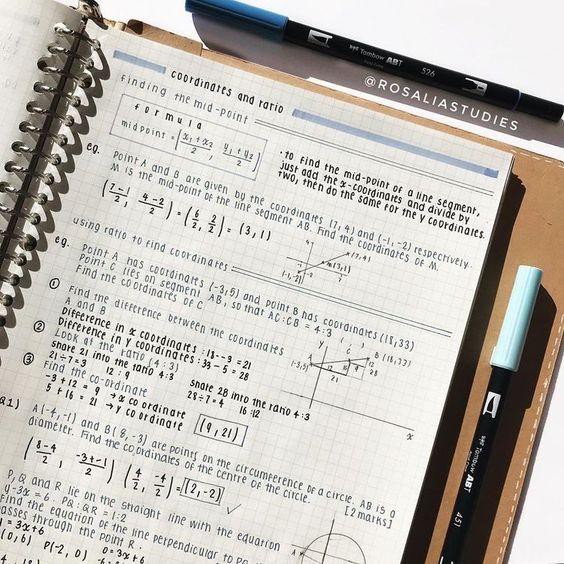 coordinates and ratio
finding the mid-point
formula
midpoint = (x₁+x₂/2, y₁+y₂/2)
·to find the mid-point of a line segment,
just add the x-coordinates and divide by
two, then do the same for the y coordinates.
eg. Point A and B are given by the coordinates (7, 4) and (-1, -2) respectively.
M is the mid-point of the line segment AB. Find the coordinates of M.
(7-1/2, 4-2/2) = (6/2, 2/2) = (3, 1)
(7,4)
M(3,1)
(-1,-2)
using ratio to find coordinates
eg. Point A has coordinates (-3,5) and point B has coordinates (18,33)
Point C lies on segment AB, so that AC:CB = 4:3
Find the coordinates of C
① Find the difference between the coordinates
A and B
Difference in x coordinates : 18--3 = 21
Difference in y coordinates : 33-5 = 28
② Look at the ratio (4:3)
share 21 into the ratio 4:3
21÷7=3 12:9
share 28 into the ratio 4:3
28÷7=4 16:12
③ Find the co-ordinate
-3+12 = 9 → x coordinate
5+16 = 21 → y coordinate
(9,21)
y
C
B (18,33)
(-3,5)
A
12
16
9
12
21
28
x
Q1) A(-4,-1) and B(8,-3) are points on the circumference of a circle, AB is a
diameter. Find the coordinates of the centre of the circle. [2 marks]
(8-4/2, -3+-1/2) (4/2, -4/2) = (2,-2)
P, Q and R lie on the straight line with the equation
y-3x=6. PQ:QR = 1:2
Find the equation of the line perpendicular to PQ
passes through the point R.
y = 3x+6
(0,6) P(-2,0) 0=3x+6
A
@ROSALIASTUDIES
Tombow ABT 526
Tombow ABT 451